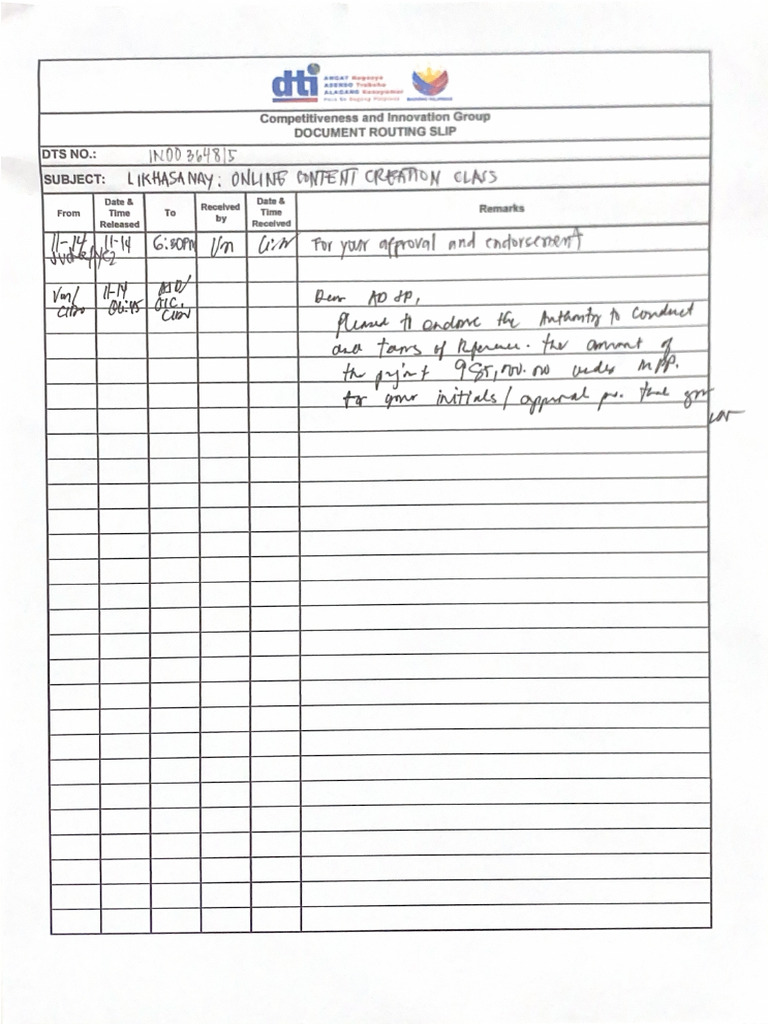 dti
ANGAT Negosyo
ASENSO Trabaho
ALAGANG Konsyumer
Para Sa Bagong Pilipinas
BAGONG PILIPINAS
Competitiveness and Innovation Group
DOCUMENT ROUTING SLIP
DTS NO.: IN00364815
SUBJECT: LIKHASANAY: ONLINE CONTENT CREATION CLASS
From Date & Time Released To Received by Date & Time Received Remarks
11-14 11-14 6:30PM For your approval and endorsement
11-14 Dear AD JP,
06:45 OIC, Pleased to endorse the Authority to Conduct
and Terms of Reference. The amount of
the project 985,000.00 under MPP.
for your initials/approval po. Thank you